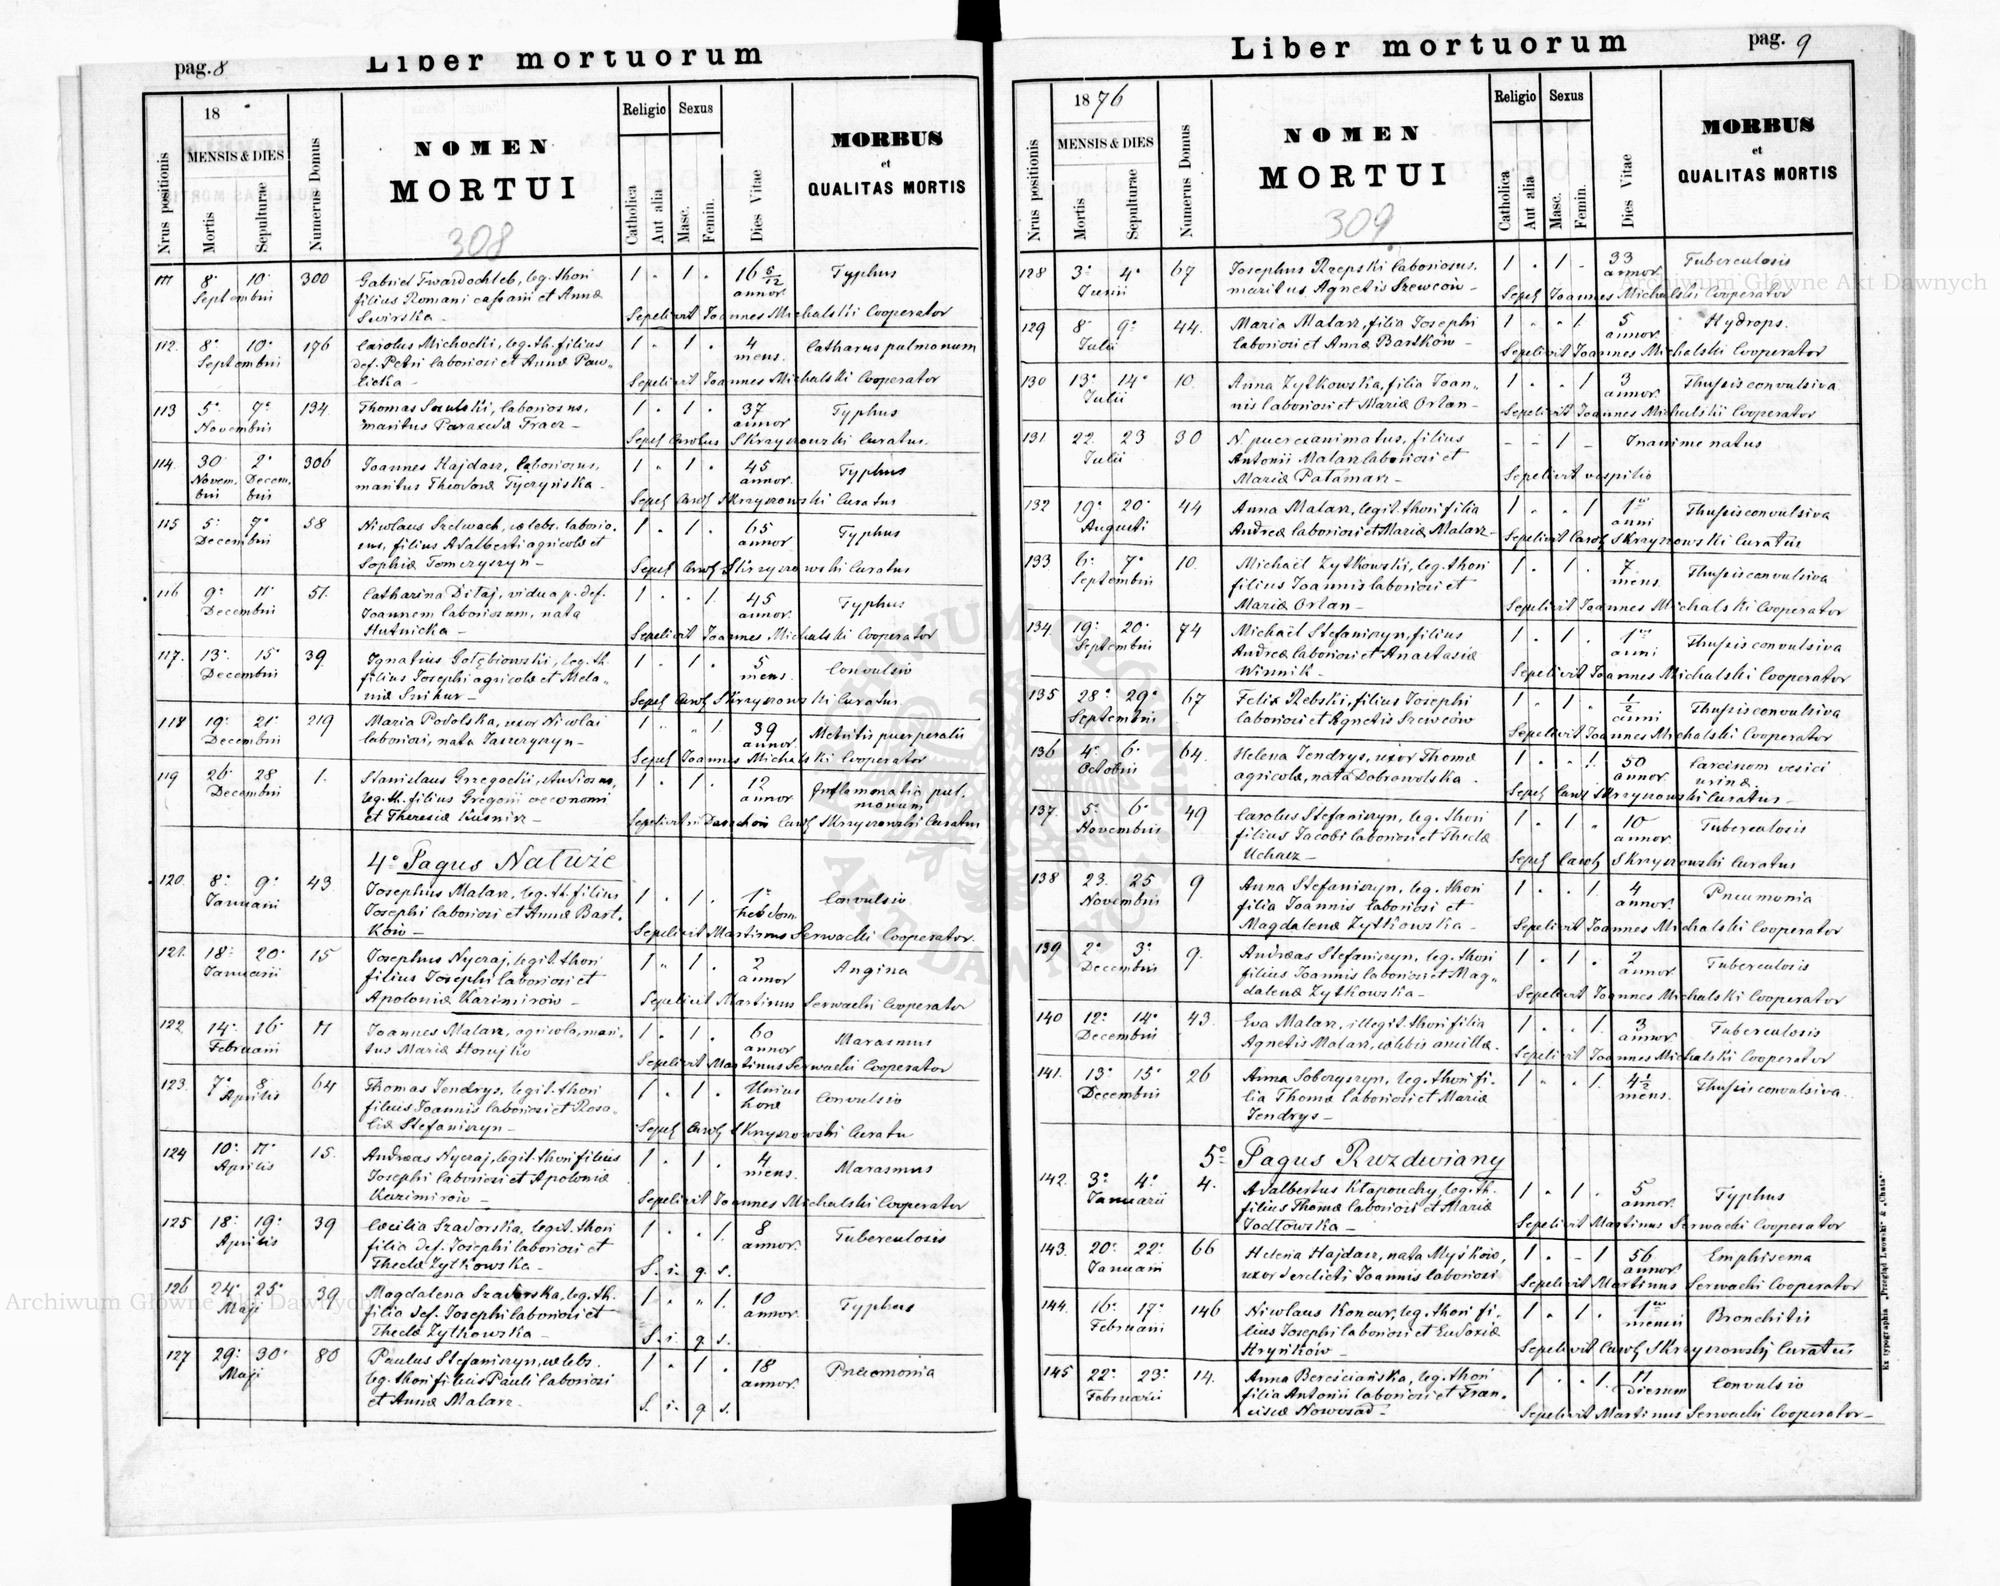 pag. 8
Liber mortuorum
Nrus positionis
18
MENSIS & DIES
Mortis
Sepulturae
Numerus Domus
NOMEN
MORTUI
308
Religio
Sexus
Catholica
Aut alia
Masc.
Femin.
Dies Vitae
MORBUS
et
QUALITAS MORTIS
111 8. 10. 300 Gabriel Twardochleb, leg. thori 1 . 1 . 16 5/12 Typhus
Septembri filius Romani et Annæ annor.
Swirska Sepelivit Joannes Michalski Cooperator
112. 8. 10. 176 Carolus Michocki, leg. th. filius 1 . 1 . 4 Catharus pulmonum
Septembri def. Petri laboriosi et Annæ Paw„ mens.
licka Sepelivit Joannes Michalski Cooperator
113 5. 7. 134. Thomas laboriosus, 1 . 1 . 37 Typhus
Novembris maritus Paraxedæ Tracz annor
Sepel. Carolus Skrzyszowski Curatus.
114. 30 2. 306 Joannes Hajdasz, laboriosus, 1 . 1 . 45 Typhus
Novem. Decem. maritus Theodoræ Tyczyńska annor.
bris bris Sepel. Carol. Skrzyszowski Curatus
115 5. 7. 58 Nicolaus Szelwach, cælebs, laborio. 1 . 1 . 65 Typhus
Decembri sus, filius Adalberti agricolæ et annor
Sophiæ Tomczyszyn Sepel. Carol. Skrzyszowski Curatus
116 9. 11. 51. Catharina Ditaj, vidua p. def. 1 . . 1. 45 Typhus
Decembri Joannem laboriosum, nata annor.
Hutnicka Sepelivit Joannes Michalski Cooperator
117. 13. 15. 39. Ignatius Gołębiowski, leg. th. 1 . 1 . 5 Convulsio
Decembri filius Josephi agricolæ et Mela„ mens.
niæ Snikur Sepel. Carol. Skrzyszowski Curatus.
118 19. 21. 219 Maria Podolska, uxor Nicolai 1 . „ 1. 39 Metritis puerperalis
Decembri laboriosi, nata annor.
Sepel. Joannes Michalski Cooperator
119 26. 28 1. Stanislaus Grzegocki, studiosus, 1 . 1 . 12 Inflamatio pul.
Decembri leg. th. filius Gregorii oeconomi annor monum
et Theresiæ Kusnisz Carol. Skrzyszowski Curatus
4° Pagus Naturie
120. 8. 9. 43 Josephus Malarz, leg. th. filius 1 . 1 . 1. Convulsio
Januarii Josephi laboriosi et Annæ Bart. hebdom.
ków Sepelivit Martinus Serwacki Cooperator.
121. 18. 20. 15 Josephus Nycraj, legit. thori 1 „ 1 . 2 Angina
Januarii filius Josephi laboriosi et annor
Apoloniæ Kazimirów Sepelivit Martinus Serwacki Cooperator
122 14. 16. 11 Joannes Malarz, agricola, mari. 1 . 1 . 60 Marasmus
Februarii tus Mariæ annor
Sepelivit Martinus Serwacki Cooperator
123. 7. 8. 64 Thomas Jendrys, legit. thori 1 . 1 . Unius Convulsio
Aprilis filius Joannis laboriosi et Rosa„ horæ
liæ Stefaniszyn Sepel. Carol. Skrzyszowski Curatu
124 10. 11. 15. Andreas Nycraj, legit. thori filius 1 . 1 . 4 Marasmus
Aprilis Josephi laboriosi et Apoloniæ mens.
Kazimirów Sepelivit Joannes Michalski Cooperator
125 18. 19. 39 Cæcilia Szadorska, legit. thori 1 . . 1. 8 Tuberculosis
Aprilis filia def. Josephi laboriosi et annor.
Theclæ Zytkowska S. i. q. s.
126 24. 25. 39 Magdalena Szadorska, leg. th. 1 . „ 1. 10 Typhus
Maji filia def. Josephi laboriosi et annor.
Theclæ Zytkowska S. i. q. s.
127 29. 30. 80 Paulus Stefaniszyn, cælebs. 1 . 1 . 18 Pneumonia
Maji leg. thori filius Pauli laboriosi annor.
et Annæ Malarz S. i. q. s.
Liber mortuorum
pag. 9
Nrus positionis
1876
MENSIS & DIES
Mortis
Sepulturae
Numerus Domus
NOMEN
MORTUI
309
Religio
Sexus
Catholica
Aut alia
Masc.
Femin.
Dies Vitae
MORBUS
et
QUALITAS MORTIS
128 3. 4. 67 Josephus Rzepski laboriosus, 1 . 1 . 33 Tuberculosis
Junii maritus Agnetis Szewców annor.
Sepel. Joannes Michalski Cooperator
129 8. 9. 44. Maria Malarz, filia Josephi 1 . . 1. 5 Hydrops.
Julii laboriosi et Annæ Bartków annor.
Sepelivit Joannes Michalski Cooperator
130 13. 14. 10. Anna Zytkowska, filia Joan„ 1 . . 1 3 Thussis convulsiva
Julii nis laboriosi et Mariæ Orlan annor.
Sepelivit Joannes Michalski Cooperator
131 22. 23 30 N. puer exanimatus, filius - - 1 - Inanime natus
Julii Antonii Malarz laboriosi et
Mariæ Patamarz Sepelivit vespilio
132 19. 20. 44 Anna Malarz, legit. thori filia 1 . . 1 1 Thussis convulsiva
Augusti Andreæ laboriosi et Mariæ Malarz anni
Sepelivit Carol. Skrzyszowski Curatus
133. 6. 7. 10. Michaël Zytkowski, leg. thori 1 . 1 . 7 Thussis convulsiva
Septembris filius Joannis laboriosi et mens.
Mariæ Orlan Sepelivit Joannes Michalski Cooperator
134. 19. 20. 74 Michaël Stefaniszyn, filius 1 . 1 . 1 Thussis convulsiva
Septembris Andreæ laboriosi et Anastasiæ anni
Winnik Sepelivit Joannes Michalski Cooperator
135 28. 29. 67 Felix Rebski, filius Josephi 1 . 1 . 1/2 Thussis convulsiva
Septembris laboriosi et Agnetis Szewców anni
Sepelivit Joannes Michalski Cooperator
136 4. 6. 64. Helena Jendrys, uxor Thomæ 1 . . 1. 50 Carcinom vesici
Octobris agricolæ, nata Dobrowolska. annor urinæ
Sepel. Carol. Skrzyszowski Curatus
137. 5. 6. 49 Carolus Stefaniszyn, leg. thori 1 . 1 . 10 Tuberculosis
Novembris filius Jacobi laboriosi et Theclæ annor.
Uchacz Sepel. Carol. Skrzyszowski Curatus
138 23. 25 9 Anna Stefaniszyn, leg. thori 1 . . 1. 4 Pneumonia
Novembris filia Joannis laboriosi et annor.
Magdalenæ Zytkowska Sepelivit Joannes Michalski Cooperator
139 2. 3. 9. Andreas Stefaniszyn, leg. thori 1 . 1 . 2 Tuberculosis
Decembris filius Joannis laboriosi et Mag„ annor.
dalenæ Zytkowska Sepelivit Joannes Michalski Cooperator
140 12. 14. 43. Eva Malarz, illegit. thori filia 1 . . 1. 3 Tuberculosis
Decembris Agnetis Malarz, cælebis ancillæ annor.
Sepelivit Joannes Michalski Cooperator
141. 13. 15. 26 Anna Soboryszyn, leg. thori fi. 1 . . 1. 4 1/2 Thussis convulsiva
Decembris lia Thomæ laboriosi et Mariæ mens.
Jendrys
5° Pagus Ruzdwiany
142. 3. 4. 4. Adalbertus Kłapouchy, leg. th. 1 . 1 . 5 Typhus
Januarii filius Thomæ laboriosi et Mariæ annor.
Jodłowska Sepelivit Martinus Serwacki Cooperator
143. 20. 22. 66 Helena Hajdasz, nata Myśków, 1 . - 1 56 Emphisema
Januarii uxor derelicti Joannis laboriosi annor.
Sepelivit Martinus Serwacki Cooperator
144. 16. 17. 146 Nicolaus Koncur, leg. thori fi. 1 . 1 . 1 Bronchitis
Februarii lius Josephi laboriosi et Eudoxiæ mensis
Kryńków Sepelivit Carol. Skrzyszowski Curatus
145 22. 23. 14. Anna Bereściańska, leg. thori 1 . . 1. 11 Convulsio
Februarii filia Antonii laboriosi et Fran. Dierum
ciscæ Nowosad Sepelivit Martinus Serwacki Cooperator
Ex typographia „Przegląd Lwowski" & „Chata".
Archiwum Główne Akt Dawnych
Archiwum Główne Akt Dawnych
ARCHIWUM GŁÓWNE AKT DAWNYCH